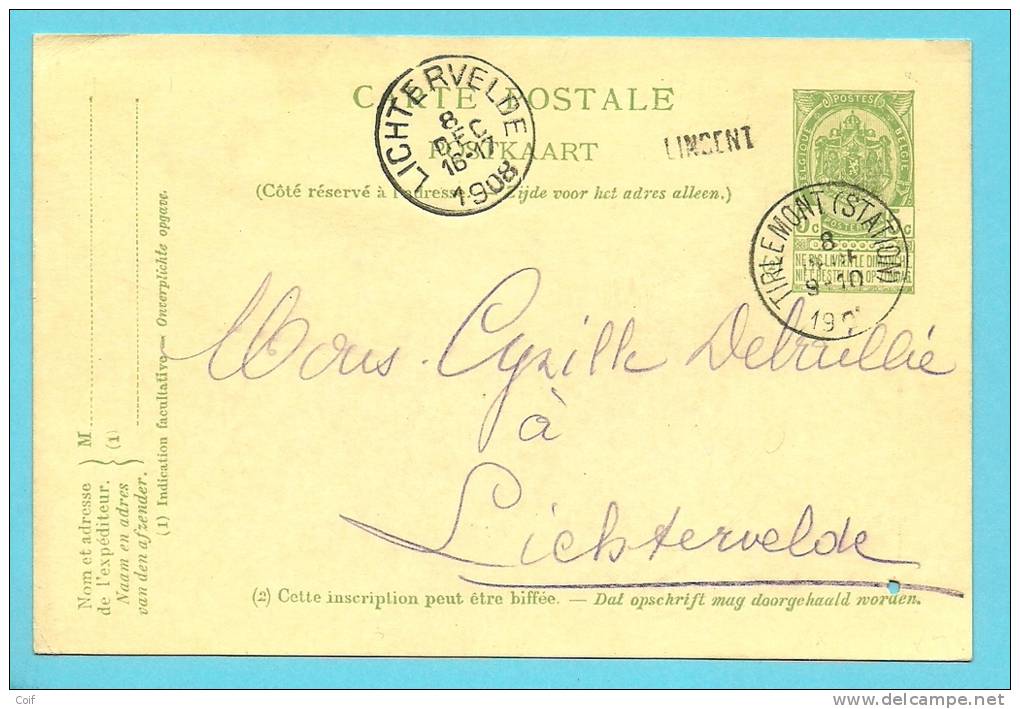 CARTE POSTALE
POSTKAART
(Côté réservé à l'adresse. Zijde voor het adres alleen.)
LICHTERVELDE
8
DEC
16-17
1908
LINSENT
POSTES
BELGIQUE
BELGIË
TIRLEMONT (STATION)
8
9-10
NE PAS LIVRER LE DIMANCHE
NIET BESTELLEN OP ZONDAG
Mons. Cyrille
à
Lichtervelde
(2) Cette inscription peut être biffée. — Dat opschrift mag doorgehaald worden.
Nom et adresse
de l'expéditeur.
Naam en adres
van den afzender.
M
(1)
(1) Indication facultative — Onverplichte opgave.
Coif
www.delcampe.net